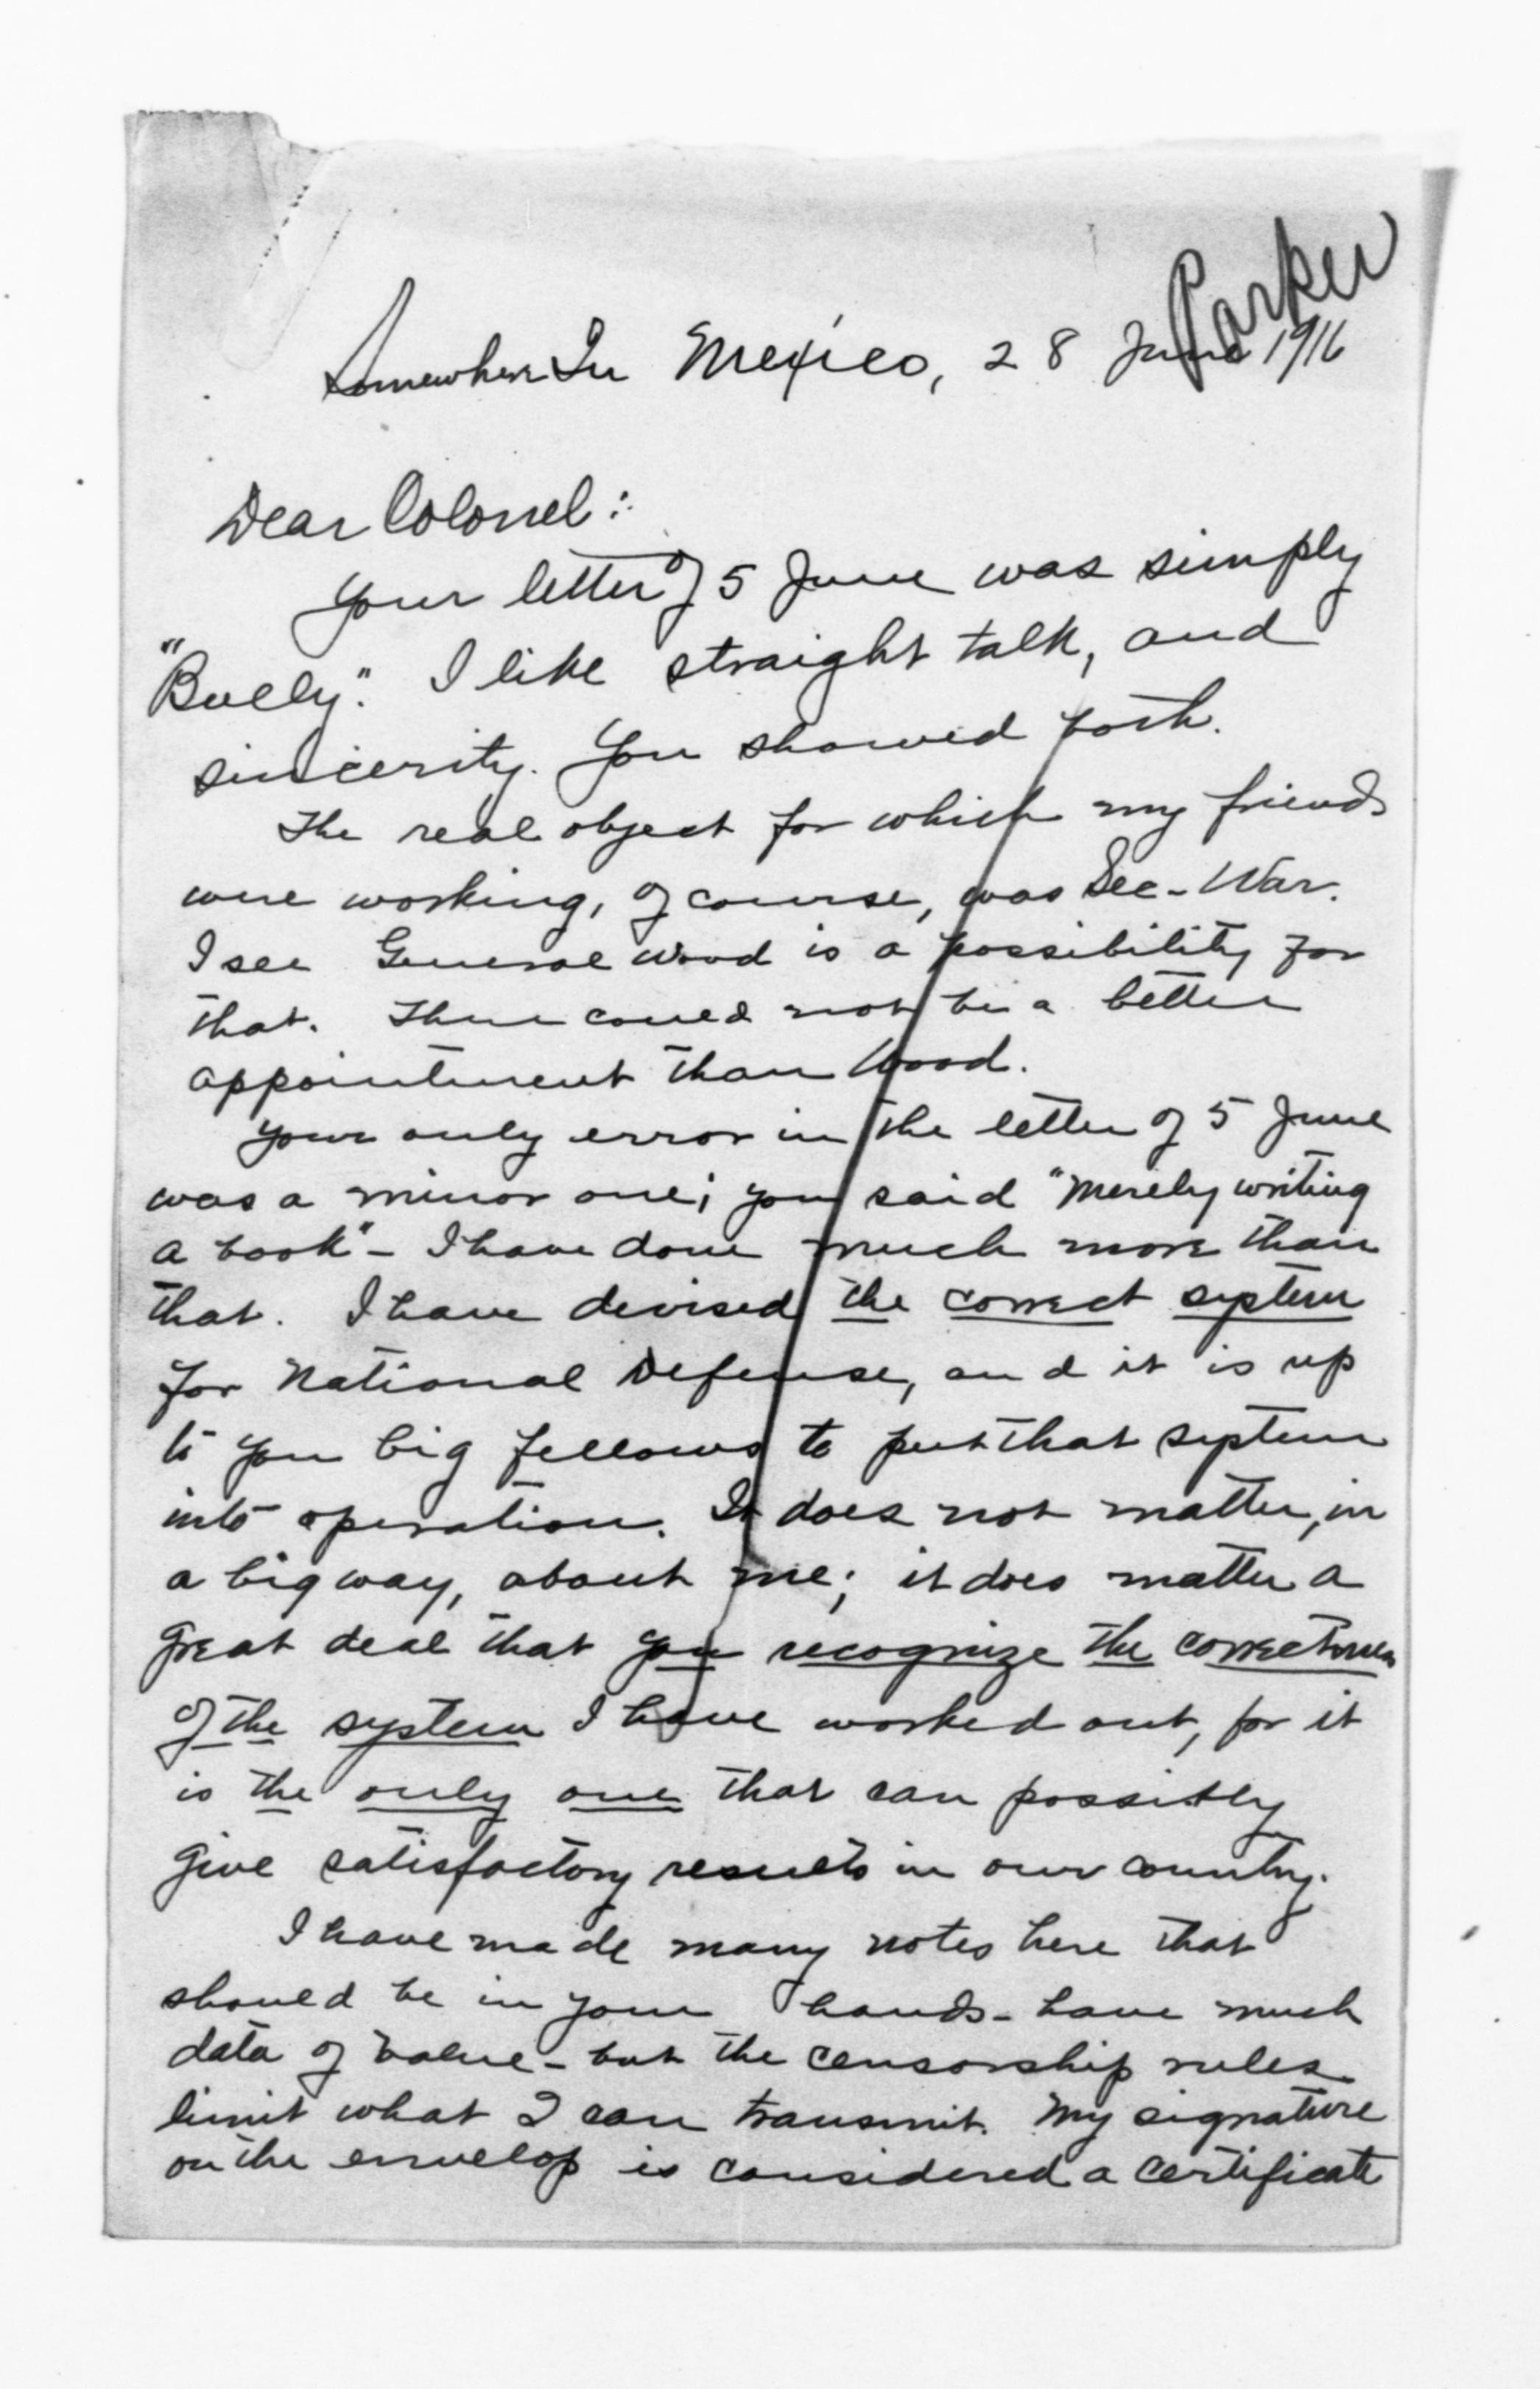 Parker
Somewhere In Mexico, 28 June 1916
Dear Colonel:
Your letter of 5 June was simply
"Bully". I like straight talk, and
sincerity. You showed both.
The real object for which my friends
were working, of course, was Sec-War.
I see General Wood is a possibility for
that. There could not be a better
appointment than Wood.
Your only error in the letter of 5 June
was a minor one; you said "merely writing
a book" - I have done much more than
that. I have devised the correct system
for National Defense, and it is up
to you big fellows to put that system
into operation. It does not matter, in
a big way, about me; it does matter a
great deal that you recognize the correctness
of the system I have worked out, for it
is the only one that can possibly
give satisfactory results in our country.
I have made many notes here that
should be in your hands - have much
data of value - but the censorship rules
limit what I can transmit. My signature
on the envelop is considered a certificate